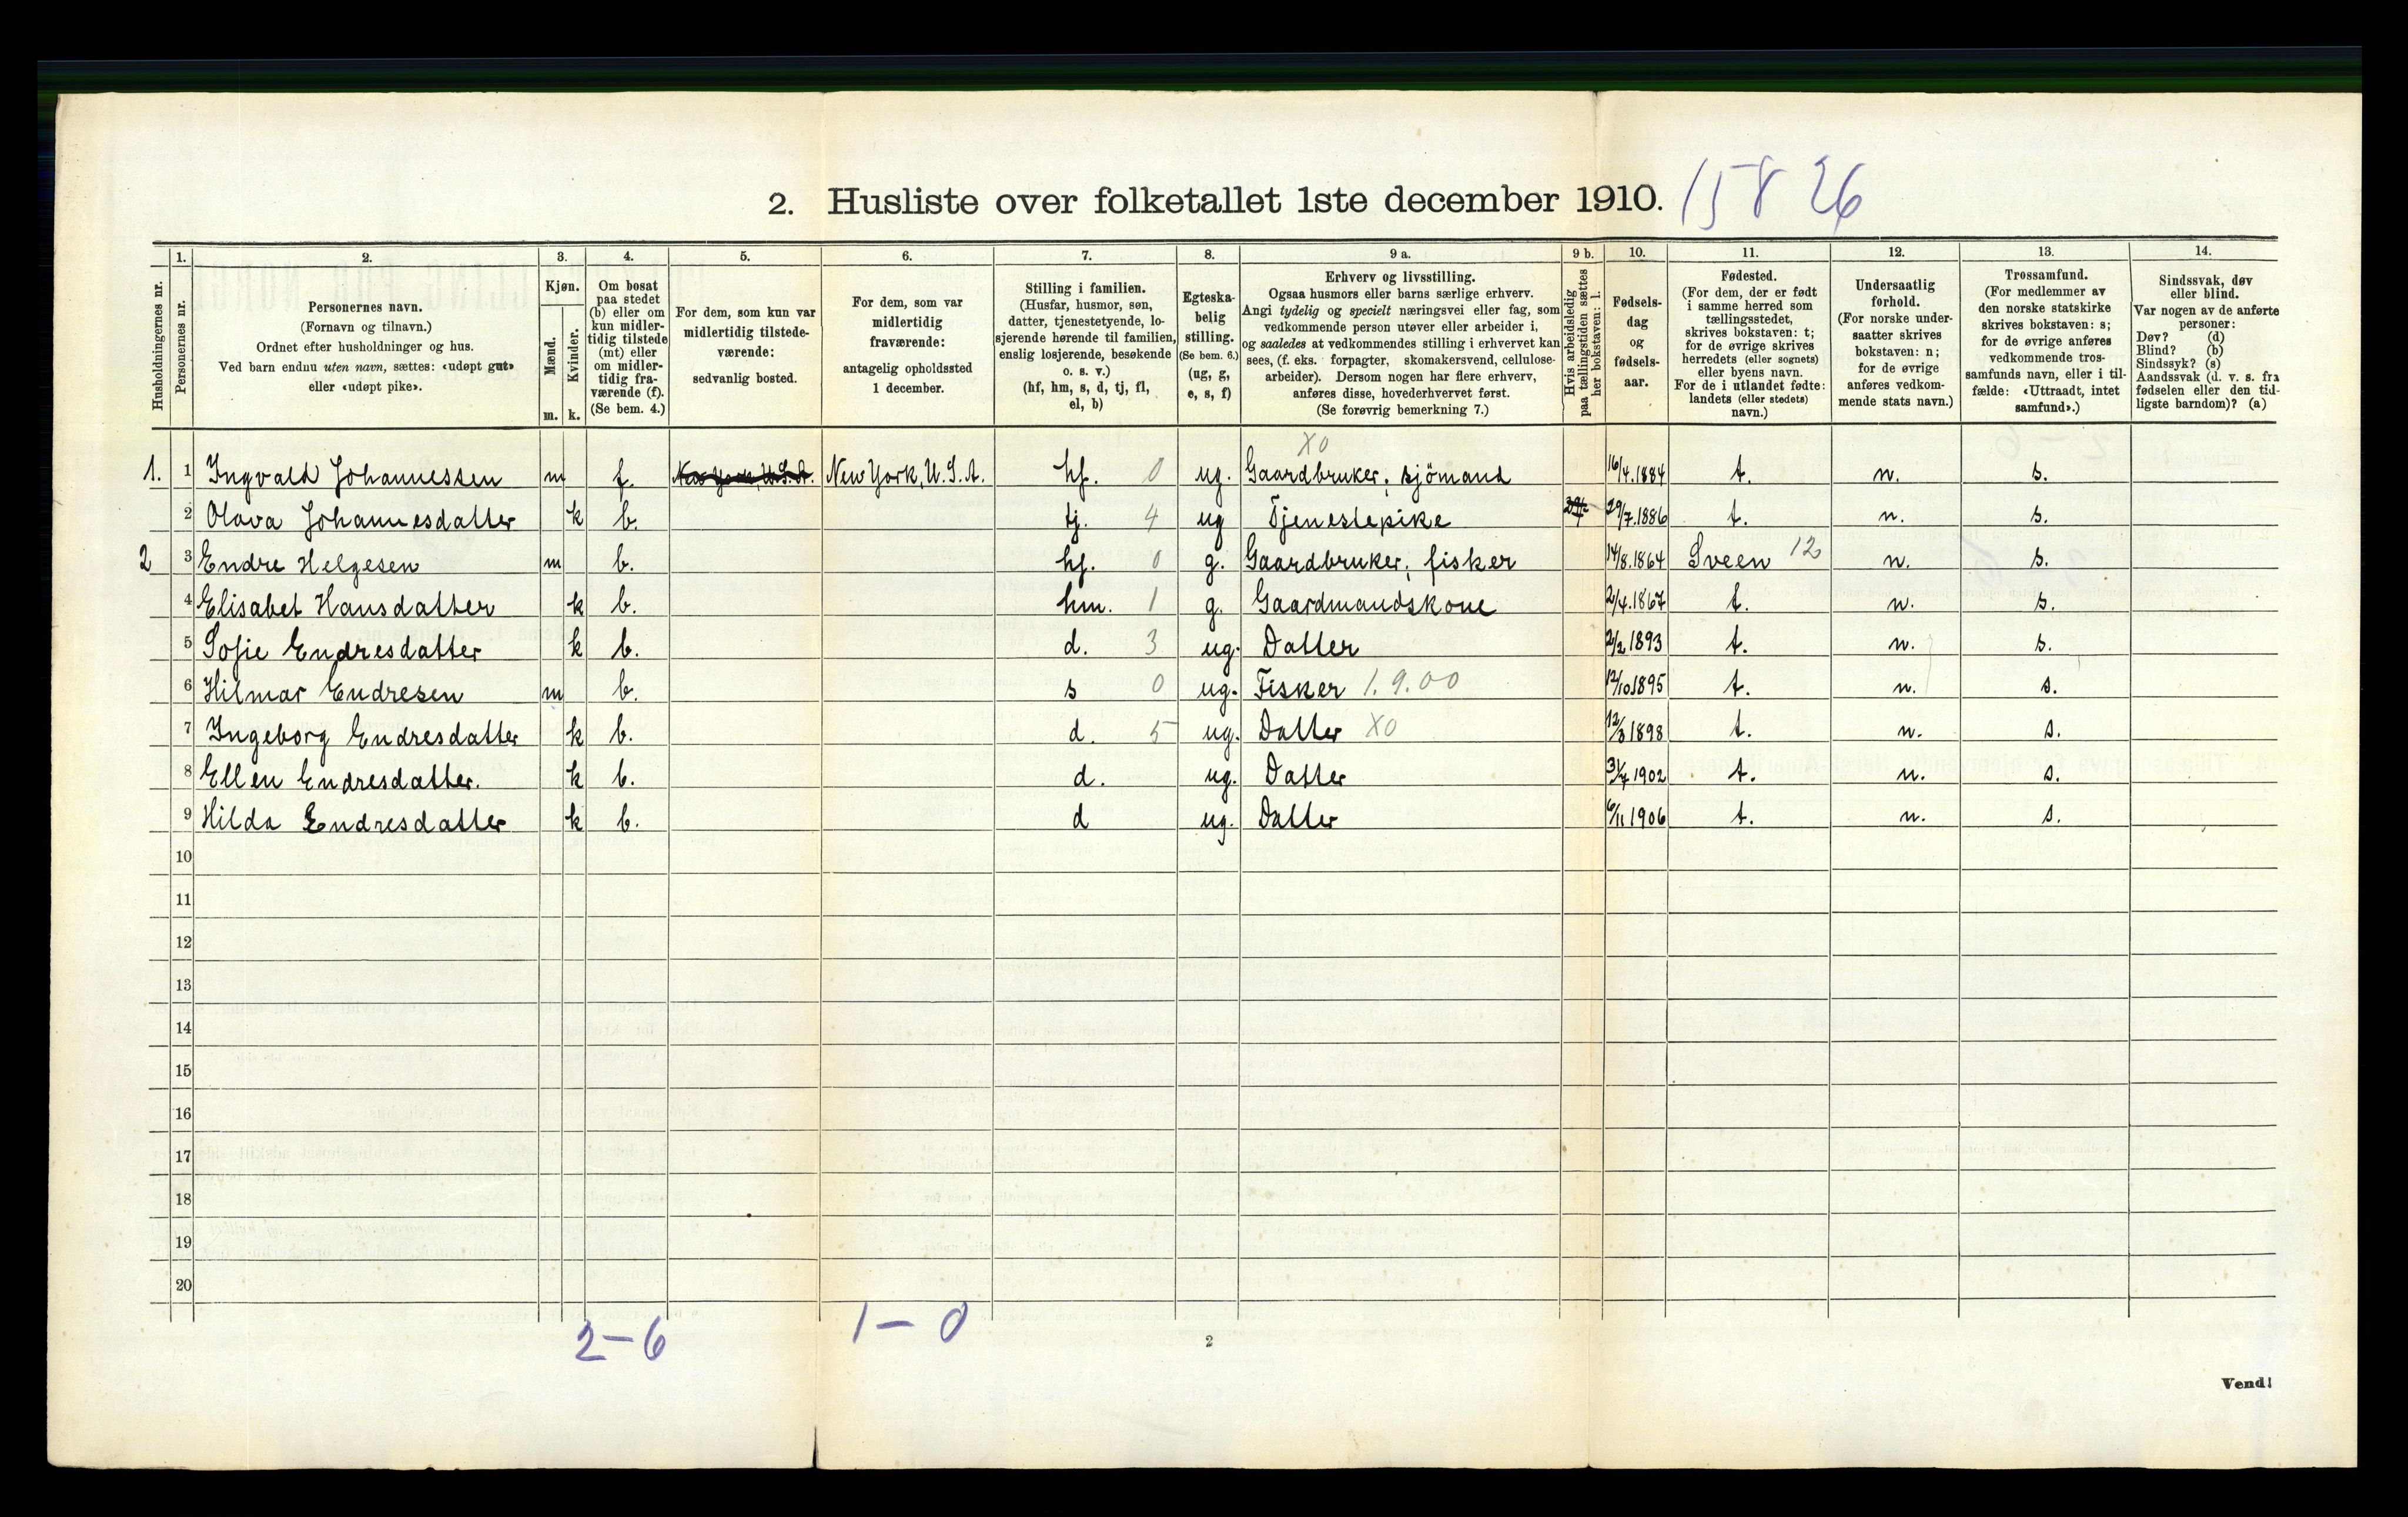 2. Husliste over folketallet 1ste december 1910. 158 26
Husholdningernes nr.
1. Personernes nr.
2. Personernes navn.
(Fornavn og tilnavn.)
Ordnet efter husholdninger og hus.
Ved barn endnu uten navn, sættes: «udøpt gut»
eller «udøpt pike».
3. Kjøn.
Mænd. m.
Kvinder. k.
4. Om bosat
paa stedet
(b) eller om
kun midler-
tidig tilstede
(mt) eller
om midler-
tidig fra-
værende (f).
(Se bem. 4.)
5. For dem, som kun var
midlertidig tilstede-
værende:
sedvanlig bosted.
6. For dem, som var
midlertidig
fraværende:
antagelig opholdssted
1 december.
7. Stilling i familien.
(Husfar, husmor, søn,
datter, tjenestetyende, lo-
sjerende hørende til familien,
enslig losjerende, besøkende
o. s. v.)
(hf, hm, s, d, tj, fl,
el, b)
8. Egteska-
belig
stilling.
(Se bem. 6.)
(ug, g,
e, s, f)
9 a. Erhverv og livsstilling.
Ogsaa husmors eller barns særlige erhverv.
Angi tydelig og specielt næringsvei eller fag, som
vedkommende person utøver eller arbeider i,
og saaledes at vedkommendes stilling i erhvervet kan
sees, (f. eks. forpagter, skomakersvend, cellulose-
arbeider). Dersom nogen har flere erhverv,
anføres disse, hovederhvervet først.
(Se forøvrig bemerkning 7.)
9 b. Hvis arbeidsledig
paa tællingstiden sættes
her bokstaven: l.
10. Fødsels-
dag
og
fødsels-
aar.
11. Fødested.
(For dem, der er født
i samme herred som
tællingsstedet,
skrives bokstaven: t;
for de øvrige skrives
herredets (eller sognets)
eller byens navn.
For de i utlandet fødte:
landets (eller stedets)
navn.)
12. Undersaatlig
forhold.
(For norske under-
saatter skrives
bokstaven: n;
for de øvrige
anføres vedkom-
mende stats navn.)
13. Trossamfund.
(For medlemmer av
den norske statskirke
skrives bokstaven: s;
for de øvrige anføres
vedkommende tros-
samfunds navn, eller i til-
fælde: «Uttraadt, intet
samfund».)
14. Sindssvak, døv
eller blind.
Var nogen av de anførte
personer:
Døv? (d)
Blind? (b)
Sindssyk? (s)
Aandssvak (d. v. s. fra
fødselen eller den tid-
ligste barndom)? (a)
X0
1. 1 Ingvald Johannessen m f. New York, U.S.A. New York, U.S.A. hf. 0 ug. Gaardbruker, sjömand 16/4.1884 t. n. s.
2 Olava Johannesdatter k b. tj. 4 ug Tjenestepike 29/7.1886 t. n. s.
2 3 Endre Helgesen m b. hf. 0 g. Gaardbruker, fisker 14/8.1864 Sveen 12 n. s.
4 Elisabet Hansdatter k b. hm. 1 g. Gaardmandskone 2/4.1867 t. n. s.
5 Sofie Endresdatter k b. d. 3 ug. Datter 2/2 1893 t. n. s.
6 Hilmar Endresen m b. s 0 ug. Fisker 1.9.00 12/10 1895 t. n. s.
7 Ingeborg Endresdatter k b. d. 5 ug. Datter X0 12/3 1898 t. n. s.
8 Ellen Endresdatter. k b. d. ug. Datter 31/7 1902 t. n. s.
9 Hilda Endresdatter k b. d ug. Datter 6/11 1906 t. n. s.
10
11
12
13
14
15
16
17
18
19
20
2-6 1-0
2
Vend!